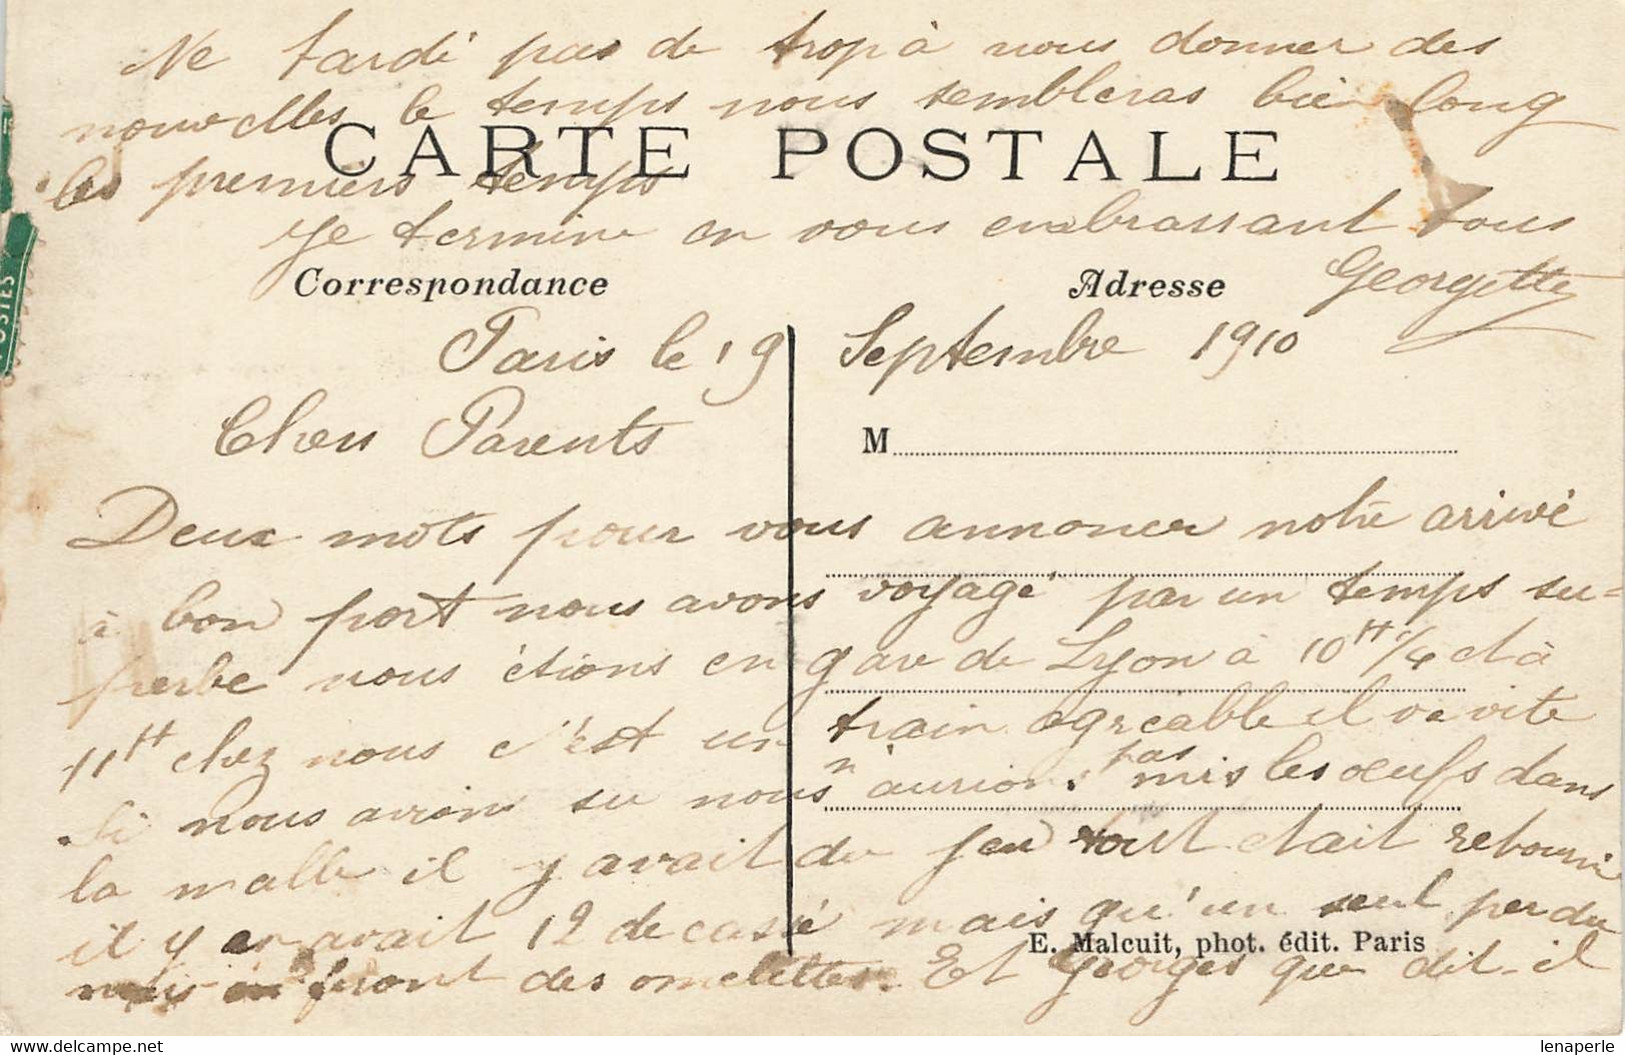 Ne tardé pas de trop à nous donner des
nouvelles le temps nous sembleras bien long
les premiers temps
CARTE POSTALE
Je termine en vous embrassant tous
Georgette
Correspondance
Adresse
Paris le 19 Septembre 1910
Chers Parents
M
Deux mots pour vous annoncer notre arrivé
à bon port nous avons voyagé par un temps su-
perbe nous étions en gare de Lyon à 10H 1/4 et à
11H chez nous c'est un train agréable il va vite
Si nous avions su nous n'aurions pas mis les oeufs dans
la malle il y avait du jeu tout était
il y en avait 12 de cassé mais qu'un seul perdu
feront des omelettes. Et Georges que dit-il
E. Malcuit, phot. édit. Paris
POSTES
delcampe.net
lenaperle